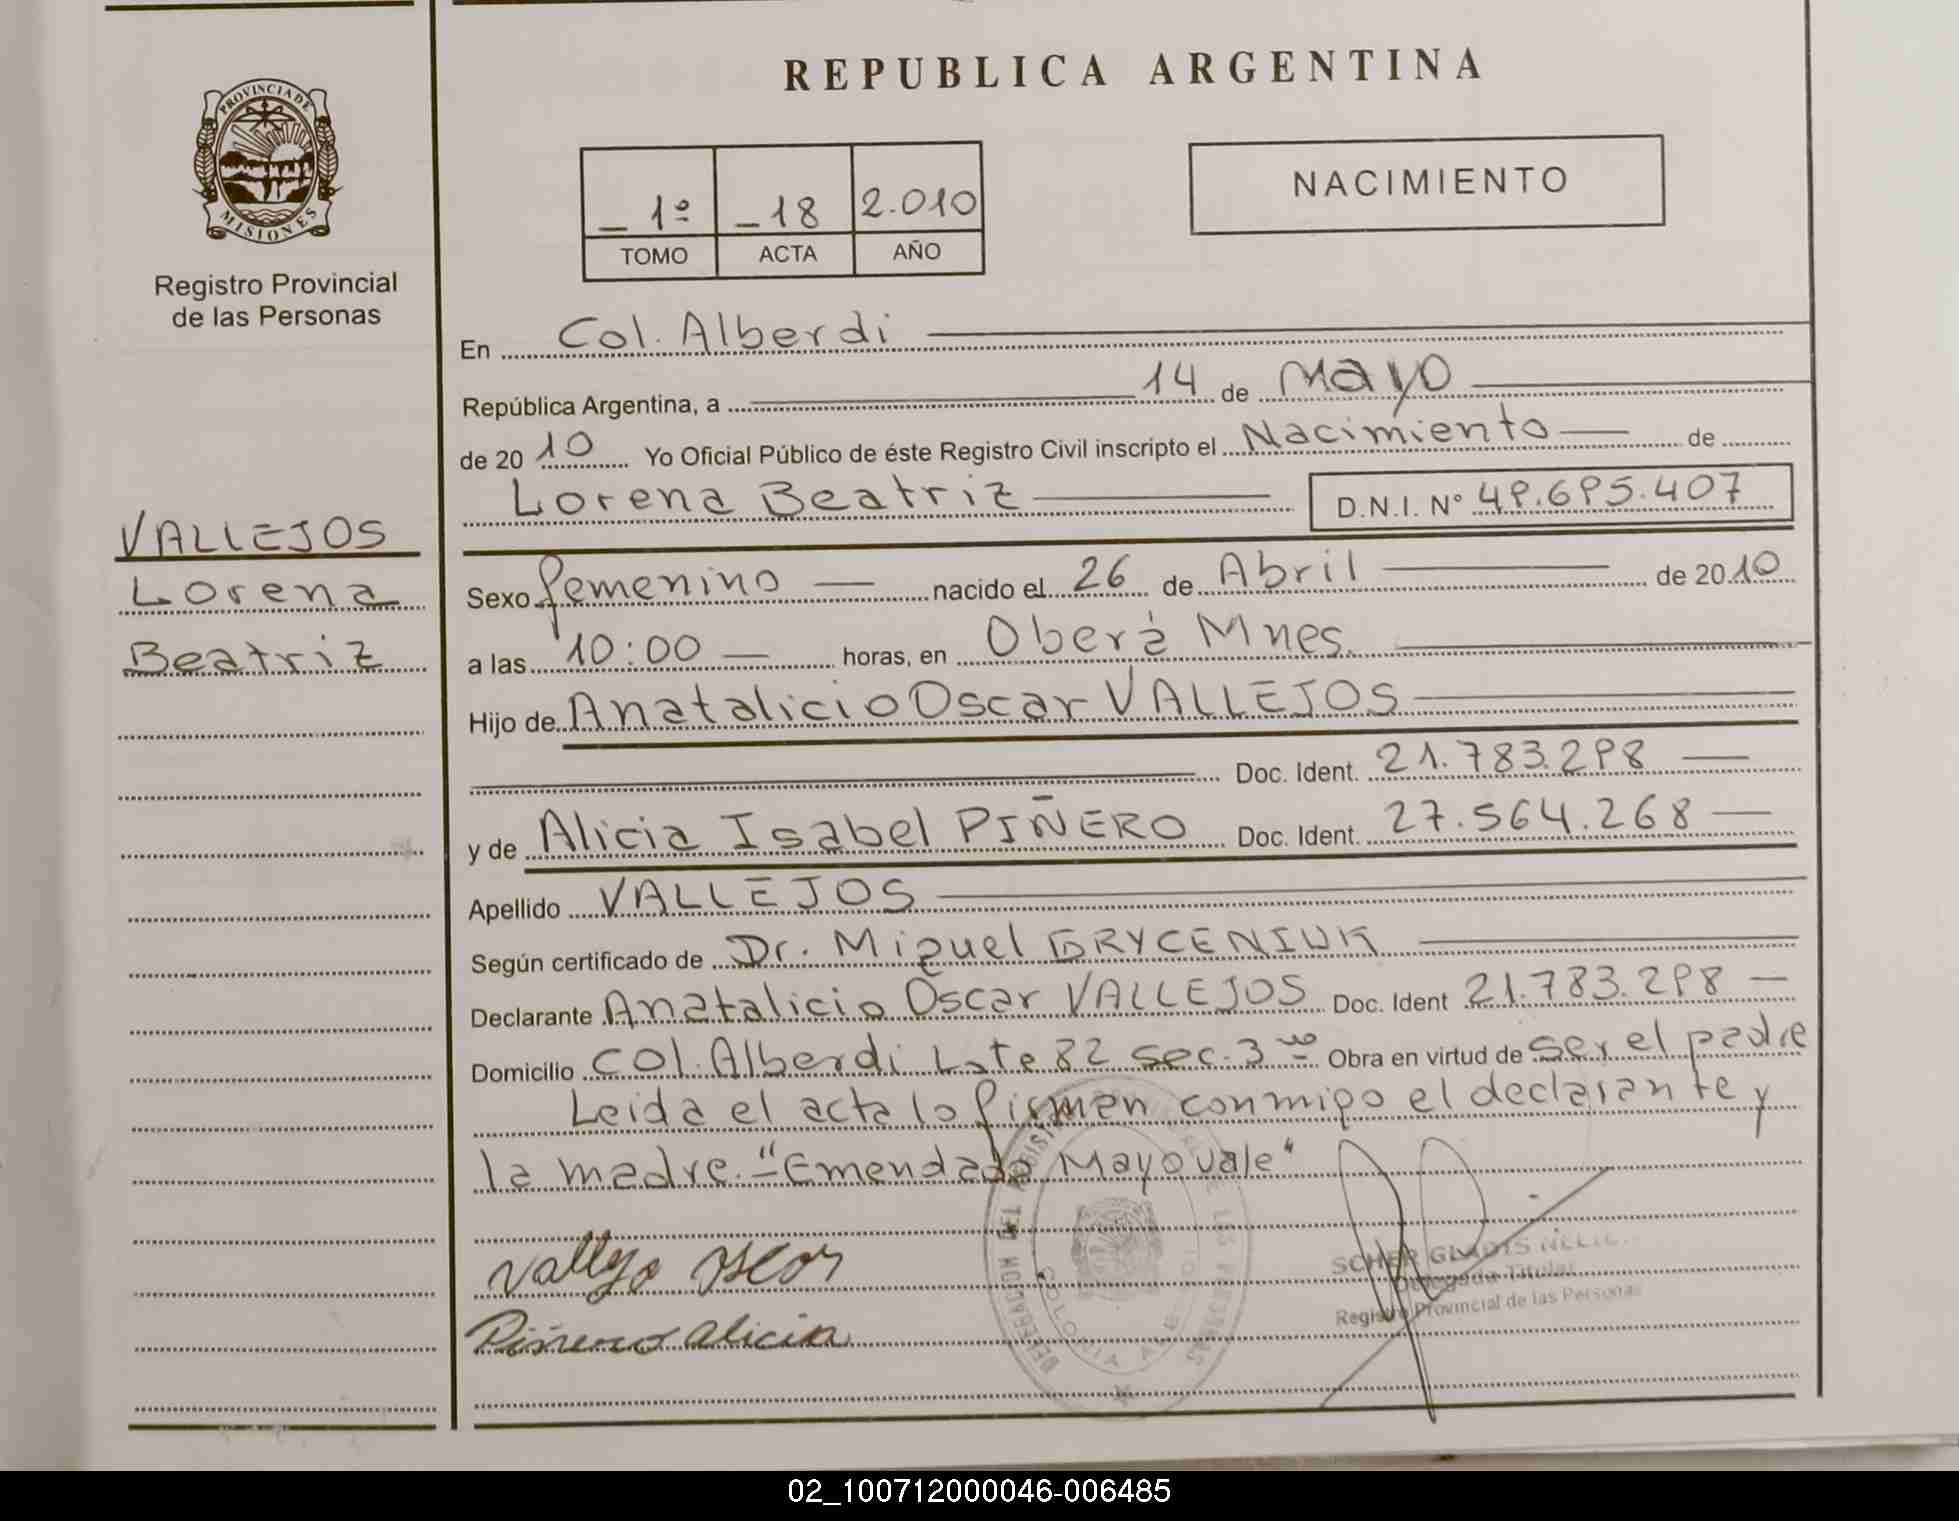 REPUBLICA ARGENTINA
PROVINCIA DE
MISIONES
Registro Provincial
de las Personas
1º 18 2.010
TOMO ACTA AÑO
NACIMIENTO
VALLEJOS
Lorena
Beatriz
En Col. Alberdi
República Argentina, a 14 de Mayo
de 20 10 Yo Oficial Público de éste Registro Civil inscripto el Nacimiento de
Lorena Beatriz D.N.I. Nº 49.695.407
Sexo femenino nacido el 26 de Abril de 2010
a las 10:00 horas, en Oberá Mnes.
Hijo de Anatalicio Oscar VALLEJOS
Doc. Ident. 21.783.298
y de Alicia Isabel PIÑERO Doc. Ident. 27.564.268
Apellido VALLEJOS
Según certificado de Dr. Miguel GRYCENIUK
Declarante Anatalicio Oscar VALLEJOS Doc. Ident 21.783.298
Domicilio Col. Alberdi Lote 82 sec. 3 Obra en virtud de ser el padre
Leida el acta lo firman conmigo el declarante y
la madre. "Emendado Mayo vale"
Vallejo Oscar
Piñero Alicia
SCHER GLADYS
Delegada Titular
Registro Provincial de las Personas
02_100712000046-006485